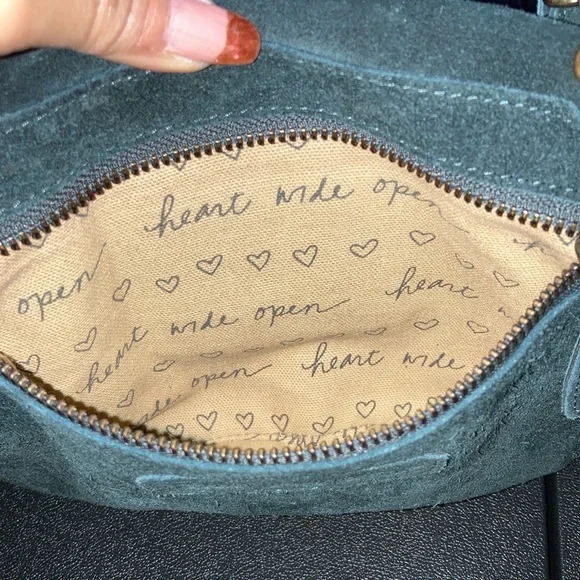 heart wide open
open
heart wide open heart
heart wide
open